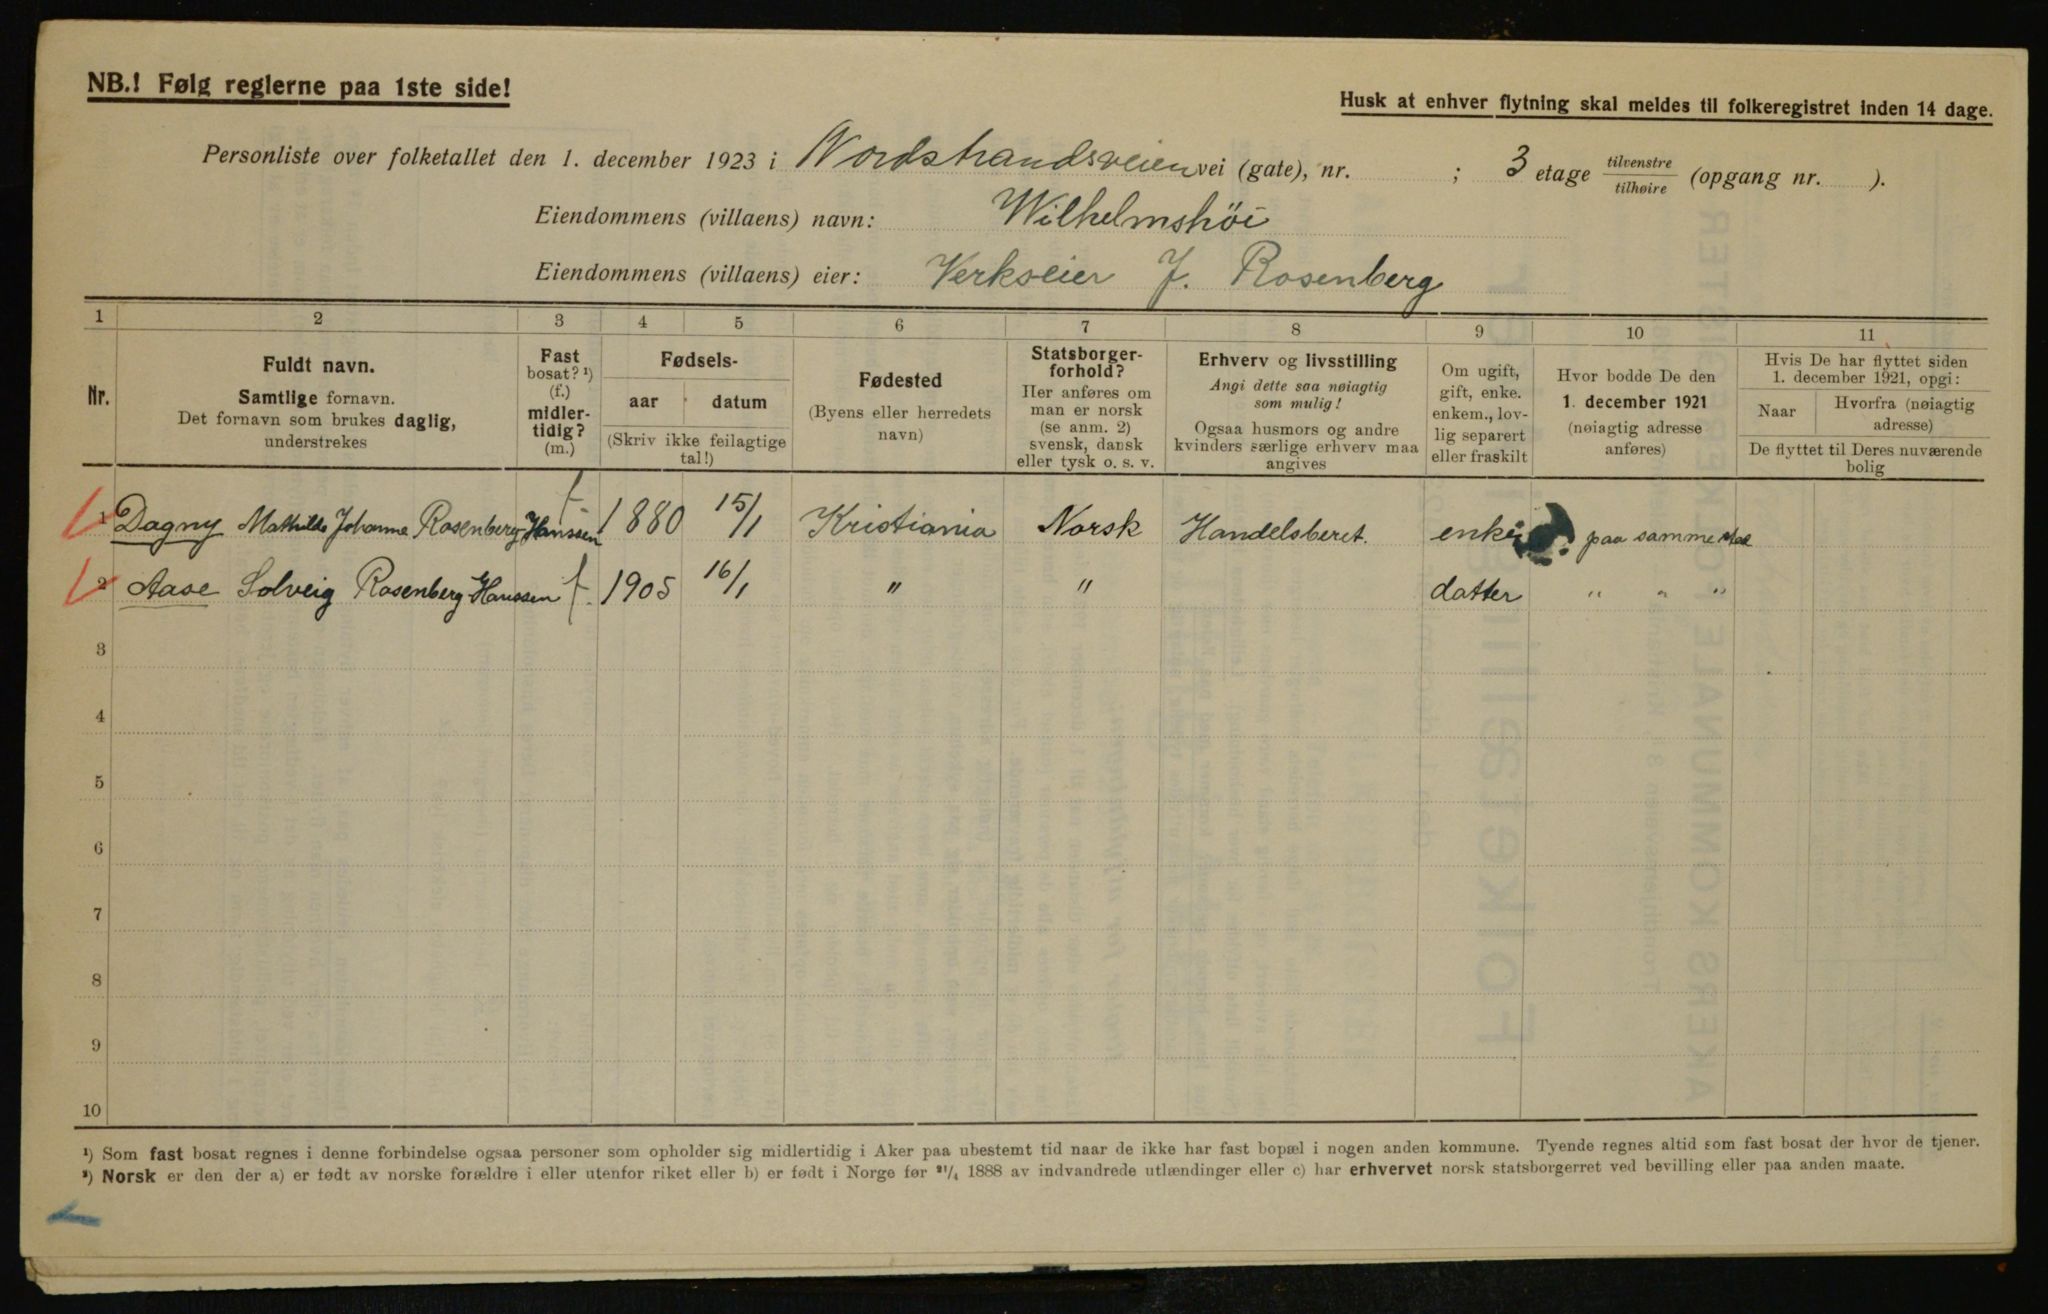 NB.! Følg reglerne paa 1ste side!
Husk at enhver flytning skal meldes til folkeregistret inden 14 dage.
Personliste over folketallet den 1. december 1923 i Nordstrandsveien vei (gate), nr. ; 3 etage tilvenstre/tilhøire (opgang nr. ).
Eiendommens (villaens) navn: Wilhelmshöi
Eiendommens (villaens) eier: Verkseier J. Rosenberg
1 2 3 4 5 6 7 8 9 10 11
Nr.
Fuldt navn.
Samtlige fornavn.
Det fornavn som brukes daglig,
understrekes
Fast
bosat? ¹)
(f.)
midler-
tidig?
(m.)
Fødsels-
aar datum
(Skriv ikke feilagtige
tal!)
Fødested
(Byens eller herredets
navn)
Statsborger-
forhold?
Her anføres om
man er norsk
(se anm. 2)
svensk, dansk
eller tysk o. s. v.
Erhverv og livsstilling
Angi dette saa nøiagtig
som mulig!
Ogsaa husmors og andre
kvinders særlige erhverv maa
angives
Om ugift,
gift, enke.
enkem., lov-
lig separert
eller fraskilt
Hvor bodde De den
1. december 1921
(nøiagtig adresse
anføres)
Hvis De har flyttet siden
1. december 1921, opgi:
Naar Hvorfra (nøiagtig
adresse)
De flyttet til Deres nuværende
bolig
1 Dagny Mathilde Johanne Rosenberg-Hanssen f 1880 15/1 Kristiania Norsk Handelsberet. enke paa samme
2 Aase Solveig Rosenberg-Hanssen f. 1905 16/1 " " datter " " "
3
4
5
6
7
8
9
10
¹) Som fast bosat regnes i denne forbindelse ogsaa personer som opholder sig midlertidig i Aker paa ubestemt tid naar de ikke har fast bopæl i nogen anden kommune. Tyende regnes altid som fast bosat der hvor de tjener.
²) Norsk er den der a) er født av norske forældre i eller utenfor riket eller b) er født i Norge før ²¹/₄ 1888 av indvandrede utlændinger eller c) har erhvervet norsk statsborgerret ved bevilling eller paa anden maate.